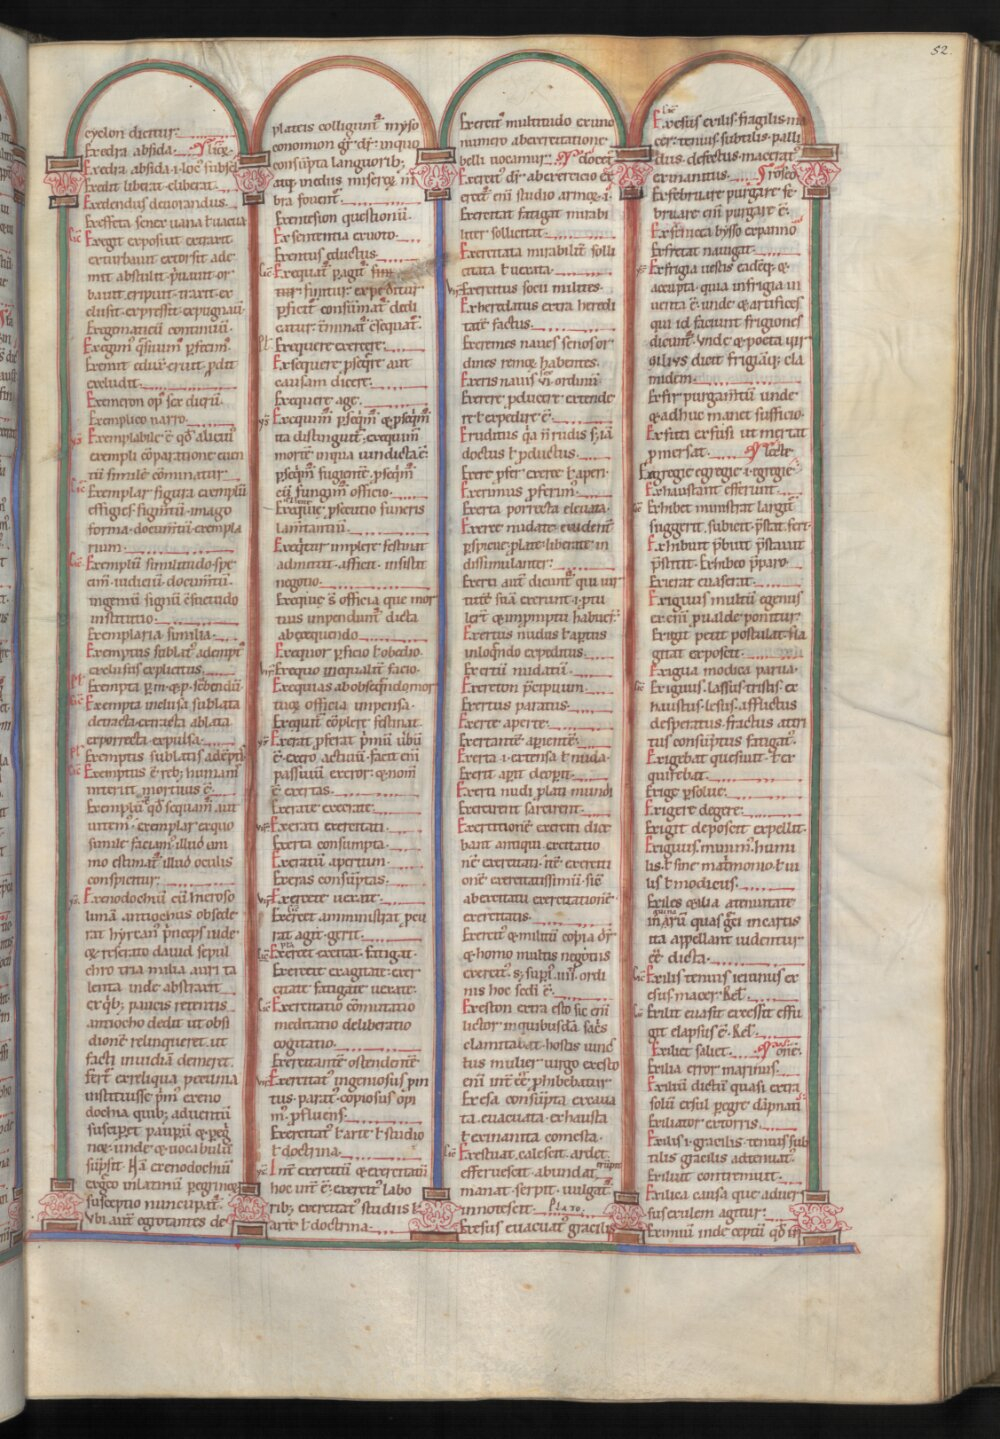 52.
cyclon dicitur.
Exedra absida.
Exedra absida .i. loc' subsel
Exedit liberat. eliberat.
Exedendus deuorandus.
Exffeta senex uana ł uacua
Exegit exposuit. extraxit.
exturbauit. extorsit. ade
mit. abstulit. p̄uauit. or
bauit. eripuit. traxit. ex
clusit. expressit. expugnauit.
Exegonaticū continuū.
Exemit. eduxit. eruit. pdit
excludit.
Exemeron op' sex dierū.
Exemplico narro.
Exemplabile ē qd' alicui'
exempli cōparatione euen
Exemplar figura exemplū
effigies. figm̄tū. imago
forma. documtū. exempla
rium.
Exemplū similitudo. spe
cim̄. iudiciū. documtū.
ingeniū signū
institutio.
Exemplaria similia.
Exemptus sublat'. adempt'
exclusus explicitus.
Exempta p m. & p. scbendū.
Exempta inclusa sublata
detracta. extracta ablata
exporrecta. expulsa.
Exemptis sublatis adēptis
Exemptus ē reb; humanis
interiit. mortuus ē.
Exemplū qd' sequam̄. aut
uitem'. exemplar exquo
simile faciam'. illud ani
mo estimat'. illud oculis
conspicitur.
Exenodochiū cū hieroso
limā antiochus obsede
rat hyrcan' p̄nceps iude
& reserato dauid sepul
chro tria milia auri ta
lenta inde abstraxit
ex qb; paucis retentis
antiocho dedit ut obsi
dionē relinqueret. ut
facti inuidiā demeret.
fert' exreliqua pecunia
instituisse p̄m' exeno
dochia quib; aduentū
susciperet paupū & pegri
noꝝ. unde & uocabulū
sūpsit. Nā exenodochiū
exgreco inlatinū pegrinoꝝ
susceptio nuncupat'.
Vbi aut' egrotantes de
plateis colligunt'. myso
conomion gr̄. dr̄. inquo
consūpta languorib;
atq; inedius miseroꝝ m̄
bra fouent'.
Exentesion questionū.
Exsententia exuoto.
Exentus eductus.
Exequat' pagit fini
tur finitur. expeditur
pficit' consūmat' dedi
catur.
Exequere exercere.
Exsequere pseqre aut
causam dicere.
Exequere age.
Exequim' pseqm' & pseqm'
ita distinguit'. exequim'
mortē inqua uindicta ē.
pseqm' fugientē. pseqm'
cū fungim' officio.
Exequie' psecutio funeris
lam̄tantiū.
Exeqtur implere festinat
admittit. afficit. insistit
negotio.
Exequie s̄ officia que mor
tuis inpendunt' dicta
abexequendo.
Exequor pficio ł obedio.
Exequo inequalitā facio.
Exequias abobseqndo mor
tuoꝝ officia impensa.
Exequit' cōplere festinat.
Exerat pferat p̄miū ūbū
ē exero. actiuū. facit enī
passiuū exeror. & nom̄
ē exertas.
Exerate execrate.
Exerati exercitati.
Exerta consumpta.
Exeratiū apertum.
Exeras consūptas.
Exercete uexate.
Exercet amministrat. pcu
rat. agit. gerit.
Exercet excitat. fatigat.
Exercetit. exagitate. exer
citate. fatigate. uexate.
Exercitatio cōmutatio
meditatio deliberatio
cogitatio.
Exercitantē ostendentē.
Exercitat' ingeniosus pin
tus. parat'. copiosus opi
m'. pfluens.
Exercitat' ł arte ł studio
ł doctrina.
Int exercitū & exercitatū
hoc int ē. exercit' labo
rib; exercitat' studiis ł
arte ł doctrina.
Exercit' multitudo exuno
numero abexercitatione
belli uocamur.
Exercit' dr̄ abexercicio ex
Exercitat fatigat mirabi
liter sollicitat.
Exercitata mirabilit' solli
citata ł uexata.
Exercitus socii milites.
Exheredatus extra heredi
tatē factus.
Exeremes naues senos or
dines remoꝝ habentes.
Exeris nauis vi. ordinū.
Exerere pducere. extende
re ł expedire ē.
Eruditus qa n̄ rudis s; iā
doctus ł pductus.
Exere pfer. exere ł aperi.
Exerimus pferim'.
Exerta porrecta eleuata.
Exerere nudate euidenter
pspicue. plane. libertate in
dissimulanter.
Exerti aut dicunt' qui uir
tutē suā exerunt .i. ptu
lert' & inpromptu habuer'.
Exertus nudus ł aptus
inloqndo expeditus.
Exertū nudatū.
Exereton p̄cipuum.
Exertus paratus.
Exerte aperte.
Exertantē aperientē.
Exerta .i. extensa ł nuda.
Exerit apit. deopit.
Exerti nudi plati mundi
Exercuerunt sarcirent.
Exercitionē exerciti dice
bant antiqui. excitatio
nē exercitati. itē exerciti
onē exercitatissimū. sic
abexercitatu exercitationē.
exercitatis.
Exercit' & militū copia dr̄.
& homo multis negotiis
exercit'. s; sup̄l. iiii. ordi
nis hoc sedi ē.
Exeston extra esto sic enī
lictor inquibusdā sacris
clamitabat. hostis uinc
tus mulier uirgo exesto
enī int ēē phibebatur.
Exesa consūpta exaua
ta. euacuata. exhausta
ł exinanita comesta.
Exestuat calescit. ardet.
efferuescit. abundat.
manat. serpit. uulgat.
innotescit.
Exesus euacuat' gracilis
Exesus exilis. fragilis. ma
cer. tenuis. subtilis. palli
dus. defectus. macerat'.
exinanitus.
Exfebruare purgare. fe
bruare enī purgare ē.
Exfretat nauigat.
Exfrigia uestis eadēq; &
accupta. quia infrigia in
uenta ē. unde & artifices
qui id faciunt frigiones
dicunt'. vnde & poeta uir
gilivs dicit. frigiāq; cla
midem.
Exfir purgam̄tū unde
& adhuc manet suffitio.
Exfuti exfusi ut mertat
p mersat.
Exgregie egregie. i. egregie.
Exhaustant efferunt.
Exhibet ministrat. largit'.
suggerit. subicit. p̄stat. fert.
Exhibuit p̄buit p̄starat
p̄stitit. Exhibeo p̄paro.
Exierat euaserat.
Exigūus multū egenus
ex enī p ualde ponitur.
Exigit petit. postulat. fla
gitat. exposcit.
Exigua modica. parua.
Exiguus. lassus. tristis. ex
haustus. lesus. afflictus
desperatus. fractus. attri
tus. consūptus. fatigat'.
Exigebat quesiuit. ł ex
quirebat.
Exige psolue.
Exigere degere.
Exigit deposcit. expellit.
Exiguus. minim'. humi
lis. ł sine matrmonio. ł ui
lis ł modicus.
Exiles & ilia attenuate
inaru quas gci incartis
ita appellant uidentur
ēē dicta.
Exilis tenuis ieiunus ex
esus macer. Rel.
Exiliit euasit. excessit. effu
git. elapsus ē. Rel.
Exiliet saliet.
Exilia error marinus.
Exiliū dictū quasi extra
solū. exsul pegre dāpnati
Exiliator extorris.
Exilis .i. gracilis. tenuis sub
tilis gracilis adtenuat'.
Exiliuit contremuit.
Exilica causa que aduer
sus exulem agitur.
Eximiū inde ceptū qd' in